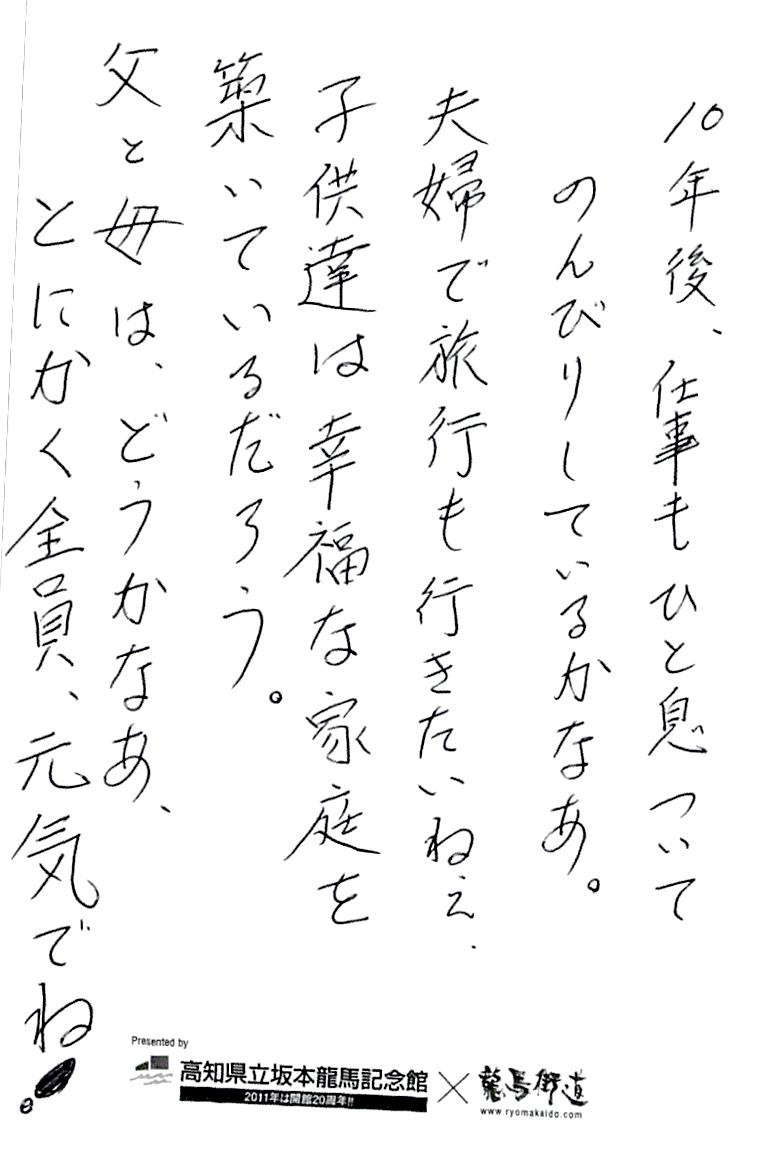 10年後、仕事もひと息ついて
のんびりしているかなあ。
夫婦で旅行も行きたいねぇ.
子供達は幸福な家庭を
築いているだろう。
父と母は、どうかなあ、
とにかく全員、元気でね!
Presented by
高知県立坂本龍馬記念館
2011年は開館20周年!!
×
龍馬街道
www.ryomakaido.com